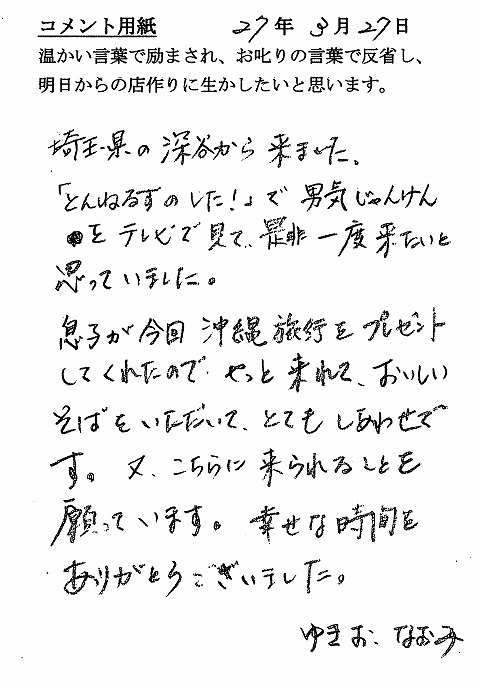 コメント用紙 27年 3月27日
温かい言葉で励まされ、お叱りの言葉で反省し、
明日からの店作りに生かしたいと思います。
埼玉県の深谷から来ました。
「とんねるずのした!」で男気じゃんけん
をテレビで見て、是非一度来たいと
思っていました。
息子が今回沖縄旅行をプレゼント
してくれたので やっと来れて、おいしい
そばをいただいて、とてもしあわせで
す。又、こちらに来られることを
願っています。幸せな時間を
ありがとうございました。
ゆきお、なおみ